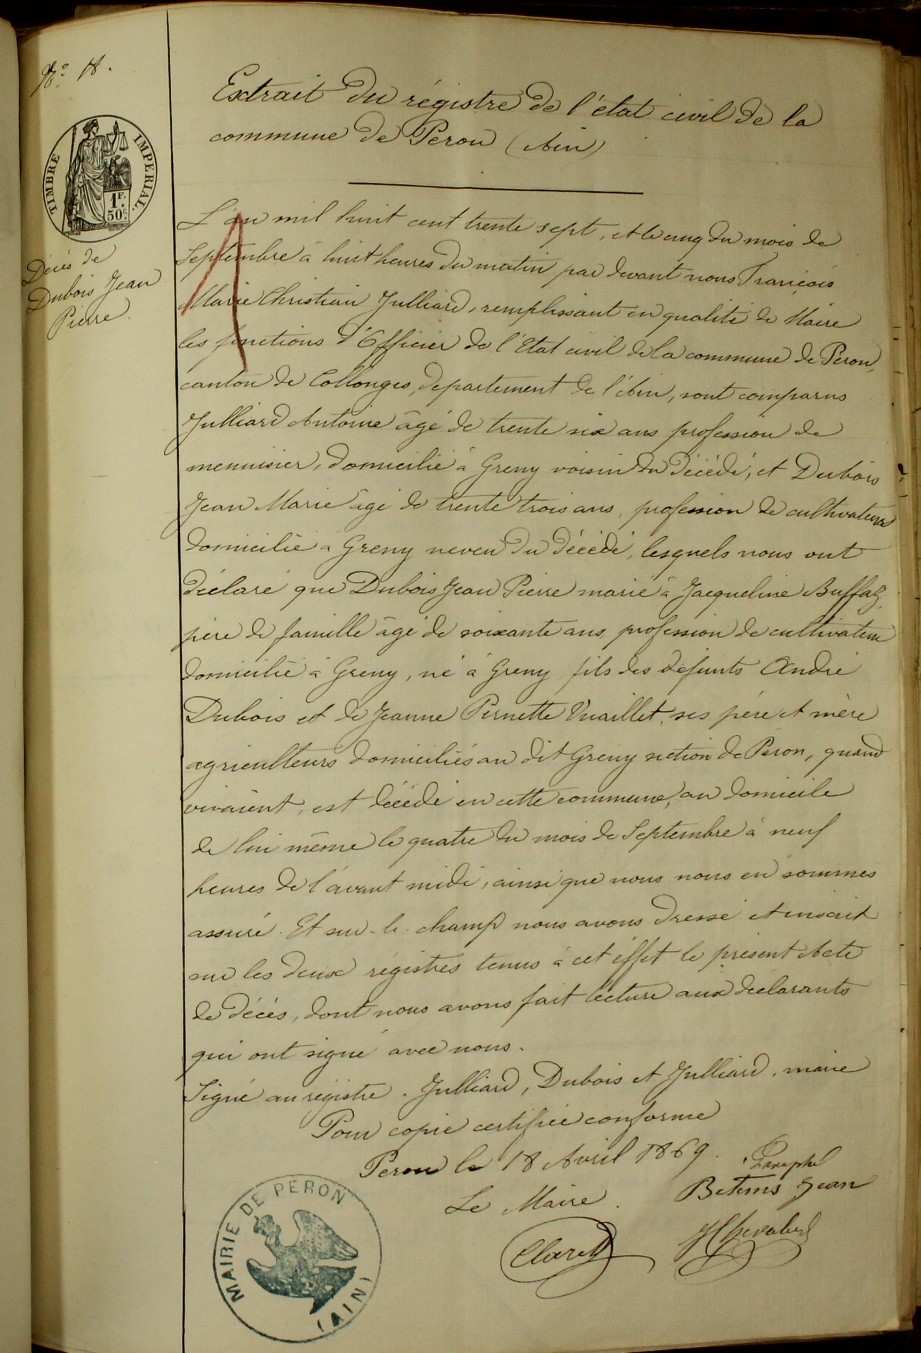 N.º 18.
TIMBRE IMPERIAL.
1F. 50c.
Décès de
Dubois Jean
Pierre.
Extrait du régistre de l'état civil de la
commune de Peron (Ain)
L'an mil huit cent trente sept, et le cinq du mois de
Septembre à huit heures du matin par devant nous François
Marie Christian Julliard, remplissant en qualité de Maire
les fonctions d'Officier de l'Etat civil de la commune de Peron,
canton de Collonges, departement de l'Ain, sont comparus
Julliard Antoine âgé de trente six ans profession de
menuisier, domicilié à Greny voisin du décédé, et Dubois
Jean Marie âgé de trente trois ans, profession de cultivateur
domicilié à Greny neveu du décédé, lesquels nous ont
déclaré que Dubois Jean Pierre marié à Jacqueline Buffaz,
père de famille âgé de soixante ans profession de cultivateur
domicilié à Greny, né à Greny fils des défunts André
Dubois et de Jeanne Pernette Vuaillet, ses père et mère
agriculteurs domiciliés au dit Greny section de Péron, quand
vivaient, est décédé en cette commune, au domicile
de lui même le quatre du mois de Septembre à neuf
heures de l'avant midi, ainsi que nous nous en sommes
assuré. Et sur-le-champ nous avons dressé et inscrit
sur les deux régistrés tenus à cet effet le présent Acte
de décés, dont nous avons fait lecture aux déclarants
qui ont signé avec nous.
Signé au régistre. Julliard, Dubois et Julliard, maire
Pour copie certifiée conforme
Peron le 18 Avril 1869.
Le Maire.
Betems Jean
MAIRIE DE PERON
(AIN)